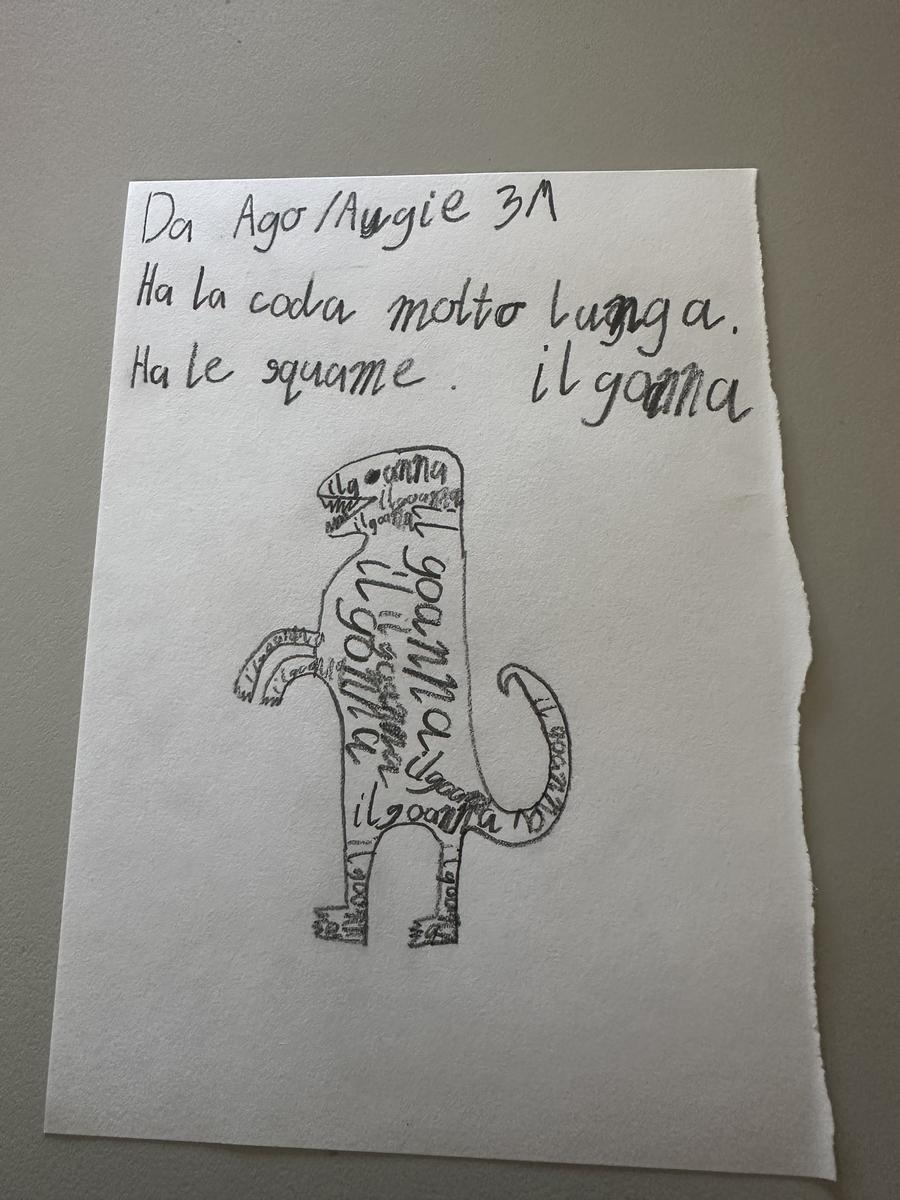 Da Ago/Augie 3M
Ha la coda molto lunga.
Ha le squame. il goanna
il goanna
il goanna
il goanna
il goanna
il goanna
il goanna
il goanna
il goanna
il goanna
il goanna
il goanna
il goa
il goa